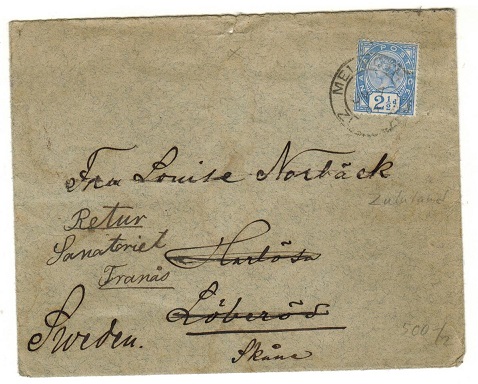 MEL
NATAL POSTAGE
2½d
Fru Louise Norbäck
Zululand
Retur
Sanatoriet
Tranås
Harlösa
Löberöd
Sweden.
Skåne
500-/2